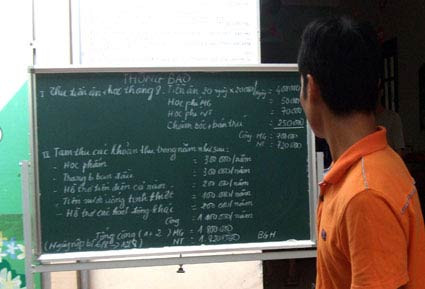 THÔNG BÁO
I Thu tiền ăn + học tháng 8. Tiền ăn 20 ngày x 20000/ngày = 400000
Học phí MG = 50000
Học phí NT = 70000
Chăm sóc + bán trú = 250000
Cộng MG = 700000
NT = 720000
II Tạm thu các khoản thu trong năm như sau:
- Học phẩm = 300 000/năm
- Trang bị ban đầu = 300 000/năm
- Hỗ trợ tiền điện cả năm = 200 000/năm
- Tiền nước uống tinh khiết = 100 000/năm
- Hỗ trợ các hoạt động khác = 200 000/năm
Cộng = 1 100 000/năm
Tổng cộng (1+2) MG = 1 800 000
NT = 1 820 000 BGH